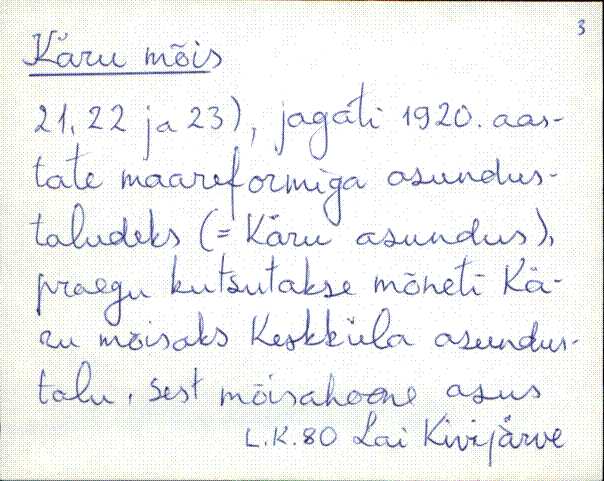 3
Käru mõis
21, 22 ja 23), jagati 1920. aas-
tate maareformiga asundus-
taludeks (= Käru asundus),
praegu kutsutakse mõneti Kä-
ru mõisaks Keskküla asundus-
talu, sest mõisahoone asus
L.K.80 Lai Kivijärve